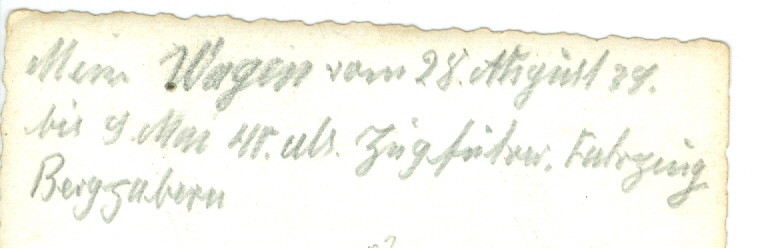 Mein Wagen vom 28. August 39.
bis 9 Mai 40. als. Zugführer. Fahrzeug
Berggabern